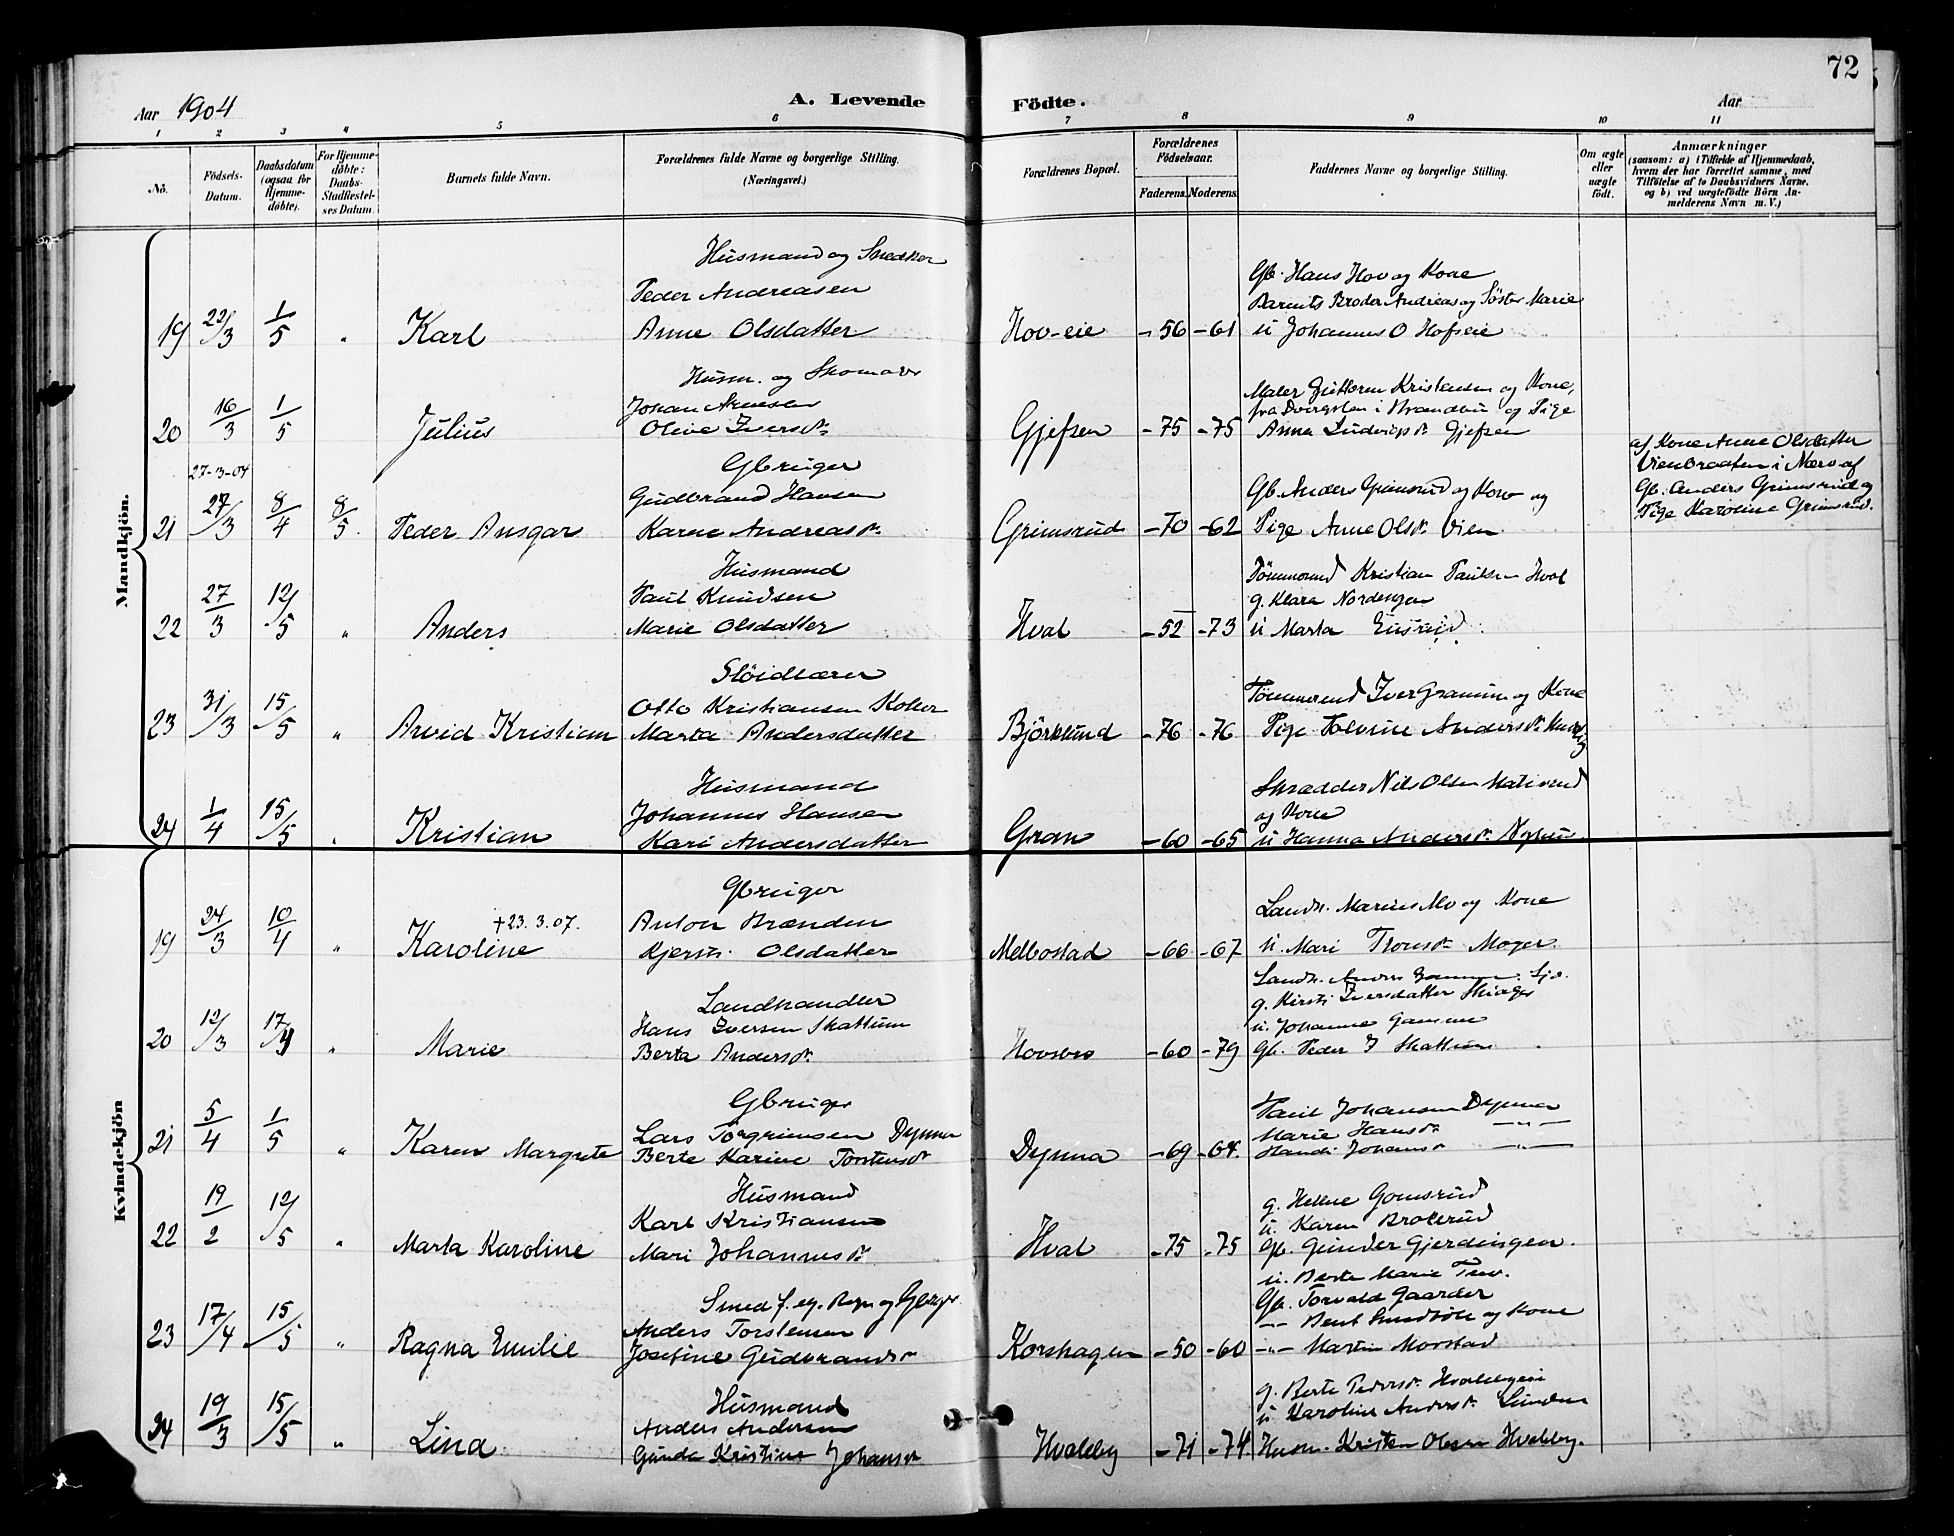 72
Aar 1904
A. Levende
Födte.
Aar
1 2 3 4 5 6 7 8 9 10 11
No.
Födsels-Datum.
Daabsdatum (ogsaa for Hjemme-döbte).
For Hjemme-döbte: Daabs-Stadfæstel-ses Datum.
Barnets fulde Navn.
Forældrenes fulde Navne og borgerlige Stilling. (Næringsvei.)
Forældrenes Bopæl.
Forældrenes Födselsaar.
Faderens.
Moderens.
Faddernes Navne og borgerlige Stilling.
Om ægte eller uægte født.
Anmærkninger
(saasom: a) i Tilfælde af Hjemmedaab, hvem der har forrettet samme, med Tilföielse af to Daabsvidners Navne, og b) ved uægtefödte Börn An-melderens Navn m. V.)
Mandkjön.
Husmand og Snedker
Peder Andreasen
19 22/3 1/5 " Karl Anne Olsdatter Hov-eie -56 -61
Gb. Hans Hov og Kone
Barnets Broder Andreas og Söster Marie
u Johannes O Hofseie
Husm. og Skomaker
20 16/3 1/5 Julius Olive Iversdr Gjefsen -75 -75
Kristensen og Kone,
i Brandbu og Pige
Anna Gjefsen
27-3-04
Gbruger
Gudbrand Hansen
21 27/3 8/4 8/5. Peder Ansgar Karen Andreasdr. Grimsrud -70 -62
Gb. Anders Grimsrud og Kone og
Pige Anne Olsdr. Vien
af Kone Anne Olsdatter
Vienbraaten i Nærv. af
Gb. Anders Grimsrud og
Pige Karoline Grimsrud.
Husmand
Paul Knudsen
22 27/3 12/5 " Anders Marie Olsdatter Hval -52 -73
Tömmermand Kristian Paulsen Hval
g. Klara Nordengen
u Marta
Slöidlærer
Otto Kristiansen Koller
23 31/3 15/5 " Arvid Kristian Marta Andersdatter Björklund -76 -76
Tömmermand Iver Granum og Kone
Pige Andersdr.
Husmand
Johannes Hansen
24 1/4 15/5 " Kristian Kari Andersdatter Gran -60 -65
Skrædder Nils Olsen
og Kone
u Hanna Andersdr.
Kvindekjön
Gbruger
+23.3.07. Anton Brænden
19 24/3 10/4 " Karoline Kjersti Olsdatter Melbostad -66 -67
Landh. Marius Mo og Kone
u. Mari Moger.
Landhandler
Hans Iversen Skattum
20 12/3 17/4 " Marie Berta Andersdr. Hovsbro -60 -79
g. Kirsti Iversdatter
u. Johanne
Gb. Peder I Skattum
Gbruger
Lars Torgrimsen Dynna
21 5/4 1/5 " Karen Margrete Berte Karine Torstensdr Dynna -69 -64.
Paul Johansen Dynna
Marie Hansdr —"—
Johansdr —"—
Husmand
Karl Kristiansen
22 19/2 12/5 " Marta Karoline Mari Johannesdr. Hval -75 -75
g. Hellene Gomsrud
u. Karen Brokerud
Gb. Gunder Gjerdingen.
u. Berte Marie
Smed f. eg. Regn og Gbruger
Anders Torstensen
23 17/4 15/5 " Ragna Emilie Josefine Gudbrandsdr Korshagen -50 -60
Gb. Torvald Gaarder
-"- og Kone
-"- Martin Morstad
Husmand
Anders Andersen
24 19/3 15/5 " Lina Gunda Kristine Johansdr. Hvaleby -71 -74.
g. Berte Pedersdr. Hvalebyeie
u Karoline Andersdr. Linden
Husm. Kristen Olsen Hvaleby.